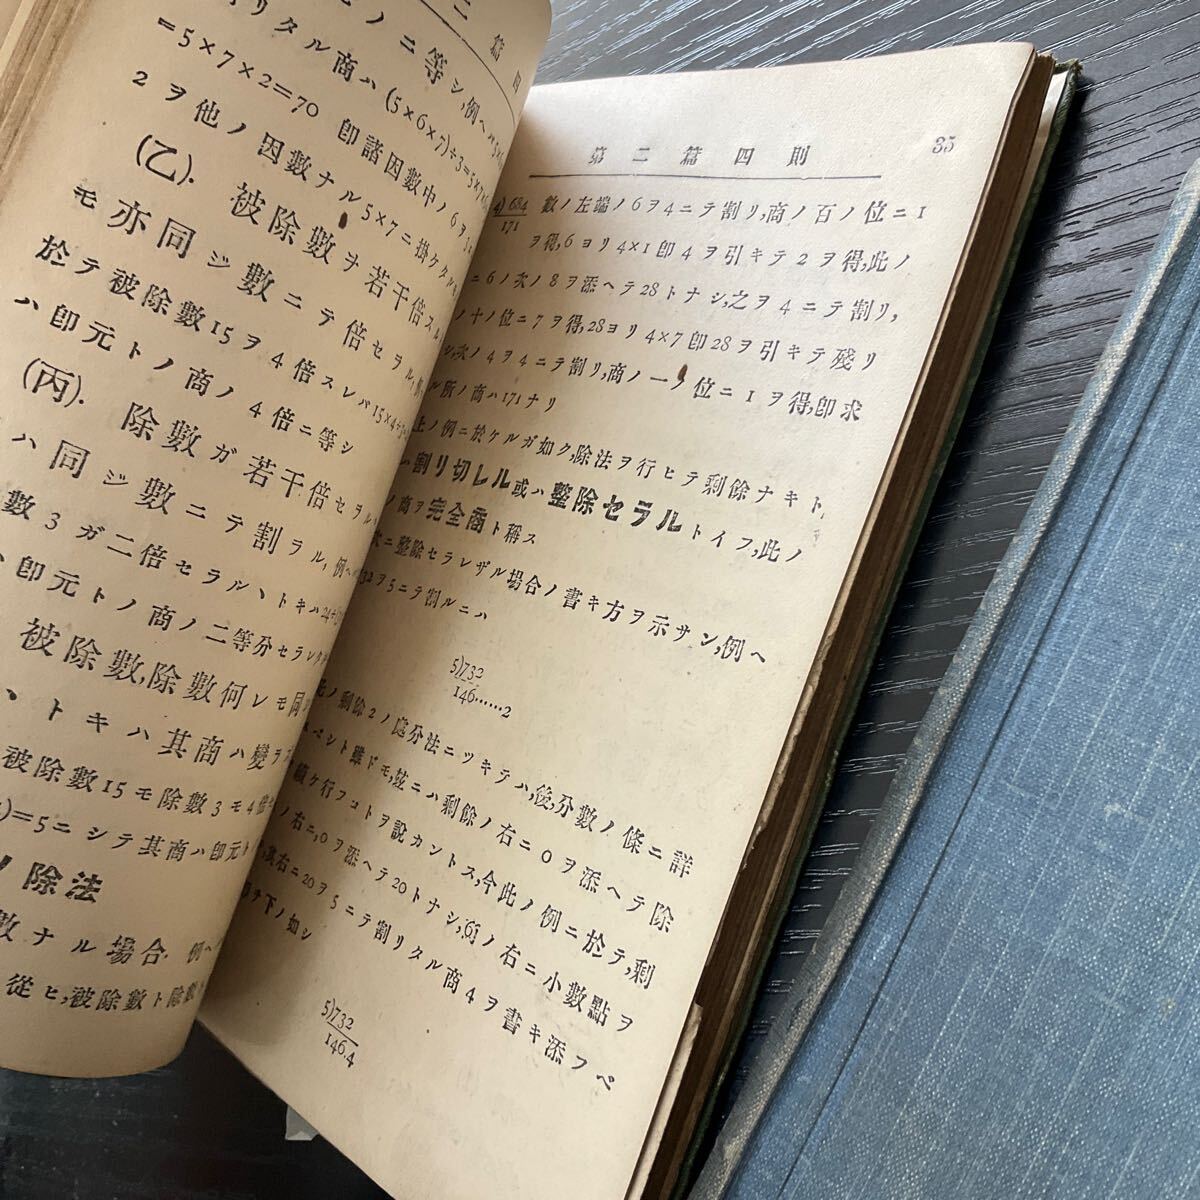 二 篇 四
ノ ニ 等 シ,例 ヘ バ
リ タ ル 商 ハ (5×6×7)÷3=5×7×
=5×7×2=70 卽 諸 因 數 中 ノ 6 ヲ
2 ヲ 他 ノ 因 數 ナ ル 5×7 ニ 掛 ケ タ ル
(乙). 被 除 數 ヲ 若 干 倍 ス
モ 亦 同 ジ 數 ニ テ 倍 セ ラ ル,
於 テ 被 除 數 15 ヲ 4 倍 ス レ バ 15×4÷
ハ 卽 元 ト ノ 商 ノ 4 倍 ニ 等 シ
(丙). 除 數 ガ 若 干 倍 セ ラ ル
ハ 同 ジ 數 ニ テ 割 ラ ル,例 ヘ
數 3 ガ 二 倍 セ ラ ル ヽ ト キ ハ 24÷
卽 元 ト ノ 商 ノ 二 等 分 セ ラ レ タ
被 除 數,除 數 何 レ モ 同
ヽ ト キ ハ 其 商 ハ 變 ラ
被 除 數 15 モ 除 數 3 モ 4 倍
)=5 ニ シ テ 其 商 ハ 卽 元
ノ 除 法
數 ナ ル 場 合. 例 ヘ
從 ヒ,被 除 數 ト 除 數
第 二 篇 四 則 35
4)684 數 ノ 左 端 ノ 6 ヲ 4 ニ テ 割 リ,商 ノ 百 ノ 位 ニ 1
171 ヲ 得,6 ヨ リ 4×1 卽 4 ヲ 引 キ テ 2 ヲ 得,此 ノ
ニ 6 ノ 次 ノ 8 ヲ 添 ヘ テ 28 ト ナ シ,之 ヲ 4 ニ テ 割 リ,
ノ 十 ノ 位 ニ 7 ヲ 得,28 ヨ リ 4×7 卽 28 ヲ 引 キ テ 殘 リ
シ,次 ノ 4 ヲ 4 ニ テ 割 リ,商 ノ 一 ノ 位 ニ 1 ヲ 得,卽 求
ル 所 ノ 商 ハ 171 ナ リ
上 ノ 例 ニ 於 ケ ル ガ 如 ク,除 法 ヲ 行 ヒ テ 剩 餘 ナ キ ト,
割 リ 切 レ ル 或 ハ 整 除 セ ラ ル ト イ フ,此 ノ
ノ 商 ヲ 完 全 商 ト 稱 ス
次 ニ 整 除 セ ラ レ ザ ル 場 合 ノ 書 キ 方 ヲ 示 サ ン,例 ヘ
32 ヲ 5 ニ テ 割 ル ニ ハ
5)732
146......2
ノ 剩 餘 2 ノ 處 分 法 ニ ツ キ テ ハ,後,分 數 ノ 條 ニ 詳
ベ シ ト 雖 ド モ,玆 ニ ハ 剩 餘 ノ 右 ニ 0 ヲ 添 ヘ テ 除
續 ケ 行 フ コ ト ヲ 說 カ ン ト ス,今 此 ノ 例 ニ 於 テ,剩
ノ 右 ニ,0 ヲ 添 ヘ テ 20 ト ナ シ, ノ 右 ニ 小 數 點 ヲ
其 右 ニ 20 ヲ 5 ニ テ 割 リ タ ル 商 4 ヲ 書 キ 添 フ ベ
チ 下 ノ 如 シ
5)732
146.4